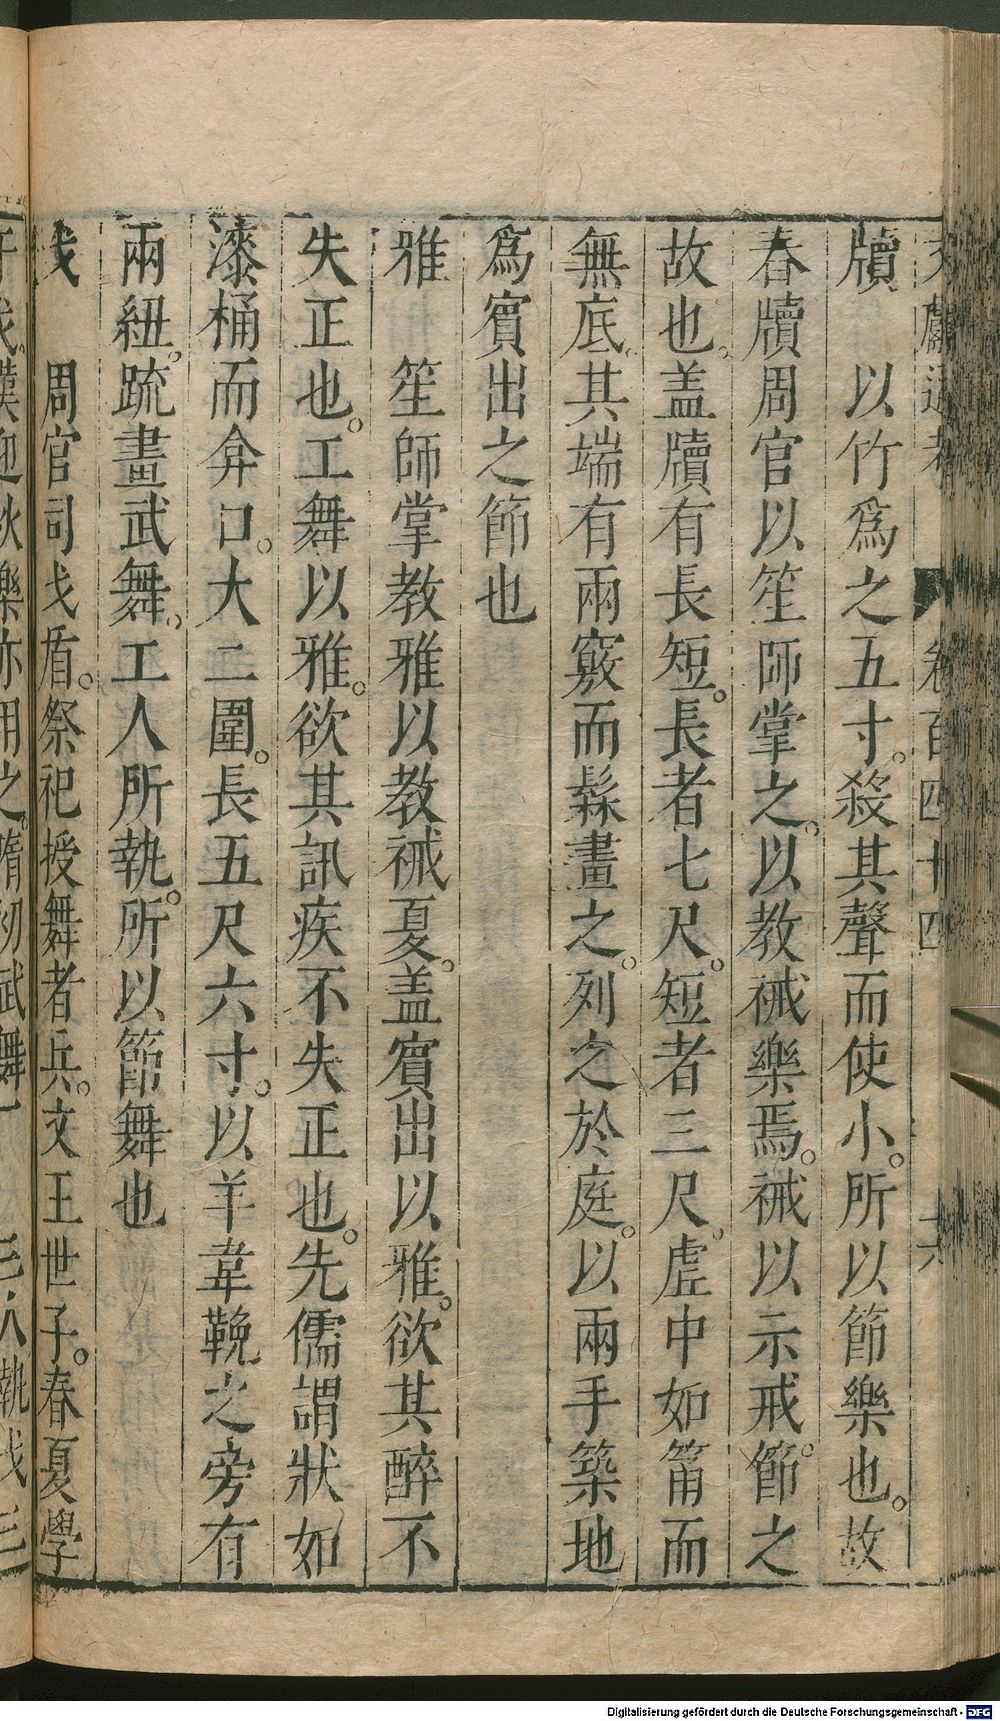 文獻通考 卷百四十四 十六
牘 以竹爲之五寸。殺其聲而使小。所以節樂也。故
舂牘周官以笙師掌之。以教祴樂焉。祴以示戒節。之
故也。盖牘有長短。長者七尺。短者三尺。虛中如筩而
無底。其端有兩竅而髹畫之。列之於庭。以兩手築地
爲賔出之節也
雅 笙師掌教雅以教祴夏。盖賔出以雅。欲其醉不
失正也。工舞以雅。欲其訊疾不失正也。先儒謂狀如
漆桶而弇口。大二圍。長五尺六寸。以羊韋鞔之旁有
兩紐。疏畫武舞。工人所執。所以節舞也
戈 周官司戈盾。祭祀授舞者兵。文王世子。春夏學
干戈。漢迎秋樂亦用之。隋初武舞 三人執戈三
Digitalisierung gefördert durch die Deutsche Forschungsgemeinschaft - DFG